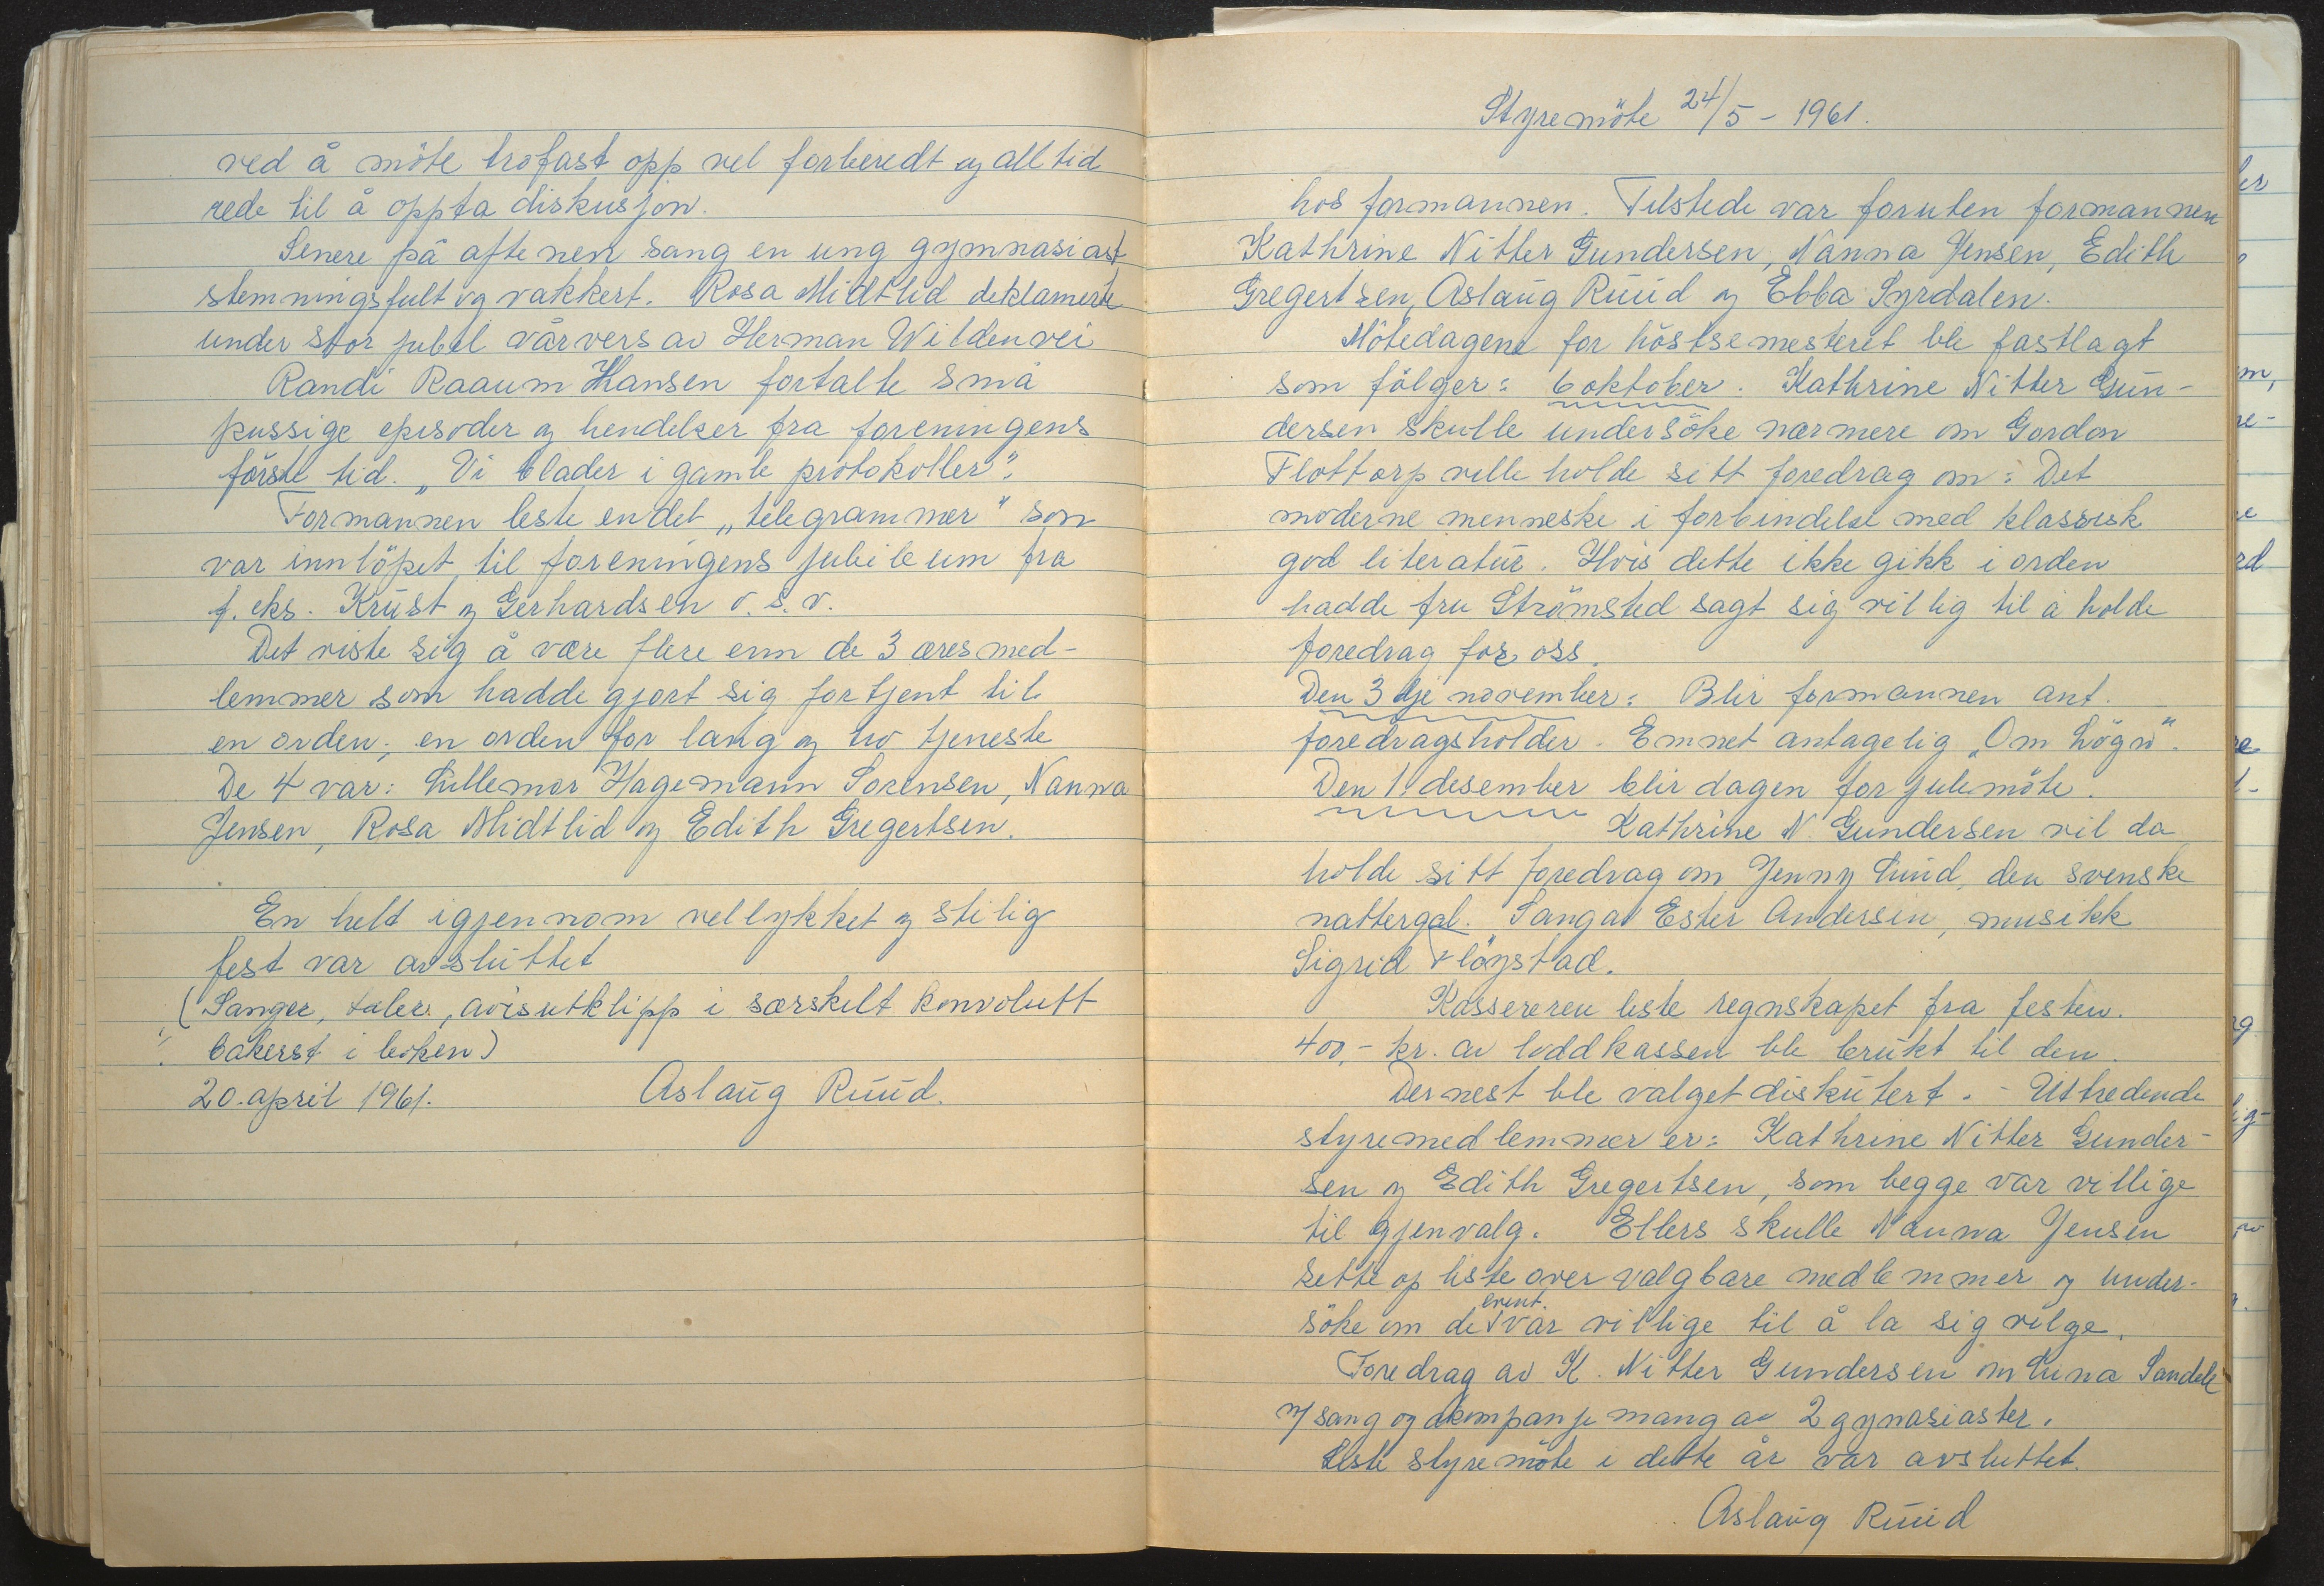 ved å möte trofast opp vel forberedt og alltid
rede til å oppta diskusjon.
Senere på aftenen sang en ung gymnasiast
stemningsfult og vakkert. Rosa Midtlid deklamerte
under stor jubel vårvers av Herman Wildenvei
Randi Raaum Hansen fortalte små
pussige episoder og hendelser fra foreningens
förste tid. „Vi blader i gamle protokoller".
Formannen leste en del „telegrammer" som
var innlöpet til foreningens jubileum fra
f. eks. Krüst og Gerhardsen o.s.v.
Det viste sig å være flere enn de 3 æresmed-
lemmer som hadde gjort sig fortjent til
en orden; en orden for lang og tro tjeneste
De 4 var: Lillemor Hagemann Sorensen, Nanna
Jensen, Rosa Midtlid og Edith Gregertsen.
En helt igjennom vellykket og stilig
fest var avsluttet
(Sanger, taler, avisutklipp i særskilt konvolutt
bakerst i boken)
20. april 1961. Aslaug Ruud.
Styremöte 24/5 - 1961.
hos formannen. Tilstede var foruten formannen
Kathrine Nitter Gundersen, Nanna Jensen, Edith
Gregertsen, Aslaug Ruud og Ebba Syrdalen.
Mötedagene for höstsemesteret ble fastlagt
som fölger: 6 oktober. Kathrine Nitter Gun-
dersen skulle undersöke nærmere om Gordon
Flottorp ville holde sitt foredrag om: Det
moderne menneske i forbindelse med klassisk
god literatur. Hvis dette ikke gikk i orden
hadde fru Strömsted sagt sig villig til å holde
foredrag for oss.
Den 3dje november: Blir formannen ant.
foredragsholder. Emnet antagelig „Om Lögn".
Den 1. desember blir dagen for julemöte.
Kathrine N. Gundersen vil da
holde sitt foredrag om Jenny Lind, den svenske
nattergal. Sang av Ester Andersen, musikk
Sigrid Flöystad.
Kassereren leste regnskapet fra festen.
400,- kr. av loddkassen ble brukt til den.
Dernest ble valget diskutert. - Uttredende
styremedlemmer er: Kathrine Nitter Gunder-
sen og Edith Gregertsen, som begge var villige
til gjenvalg. Ellers skulle Nanna Jensen
sette op liste over valgbare medlemmer og under-
söke om de event. var villige til å la sig velge.
Foredrag av K. Nitter Gundersen om Lina Sandell
m/ sang og akompanjemang av 2 gynasiaster.
Siste styremöte i dette år var avsluttet.
Aslaug Ruud